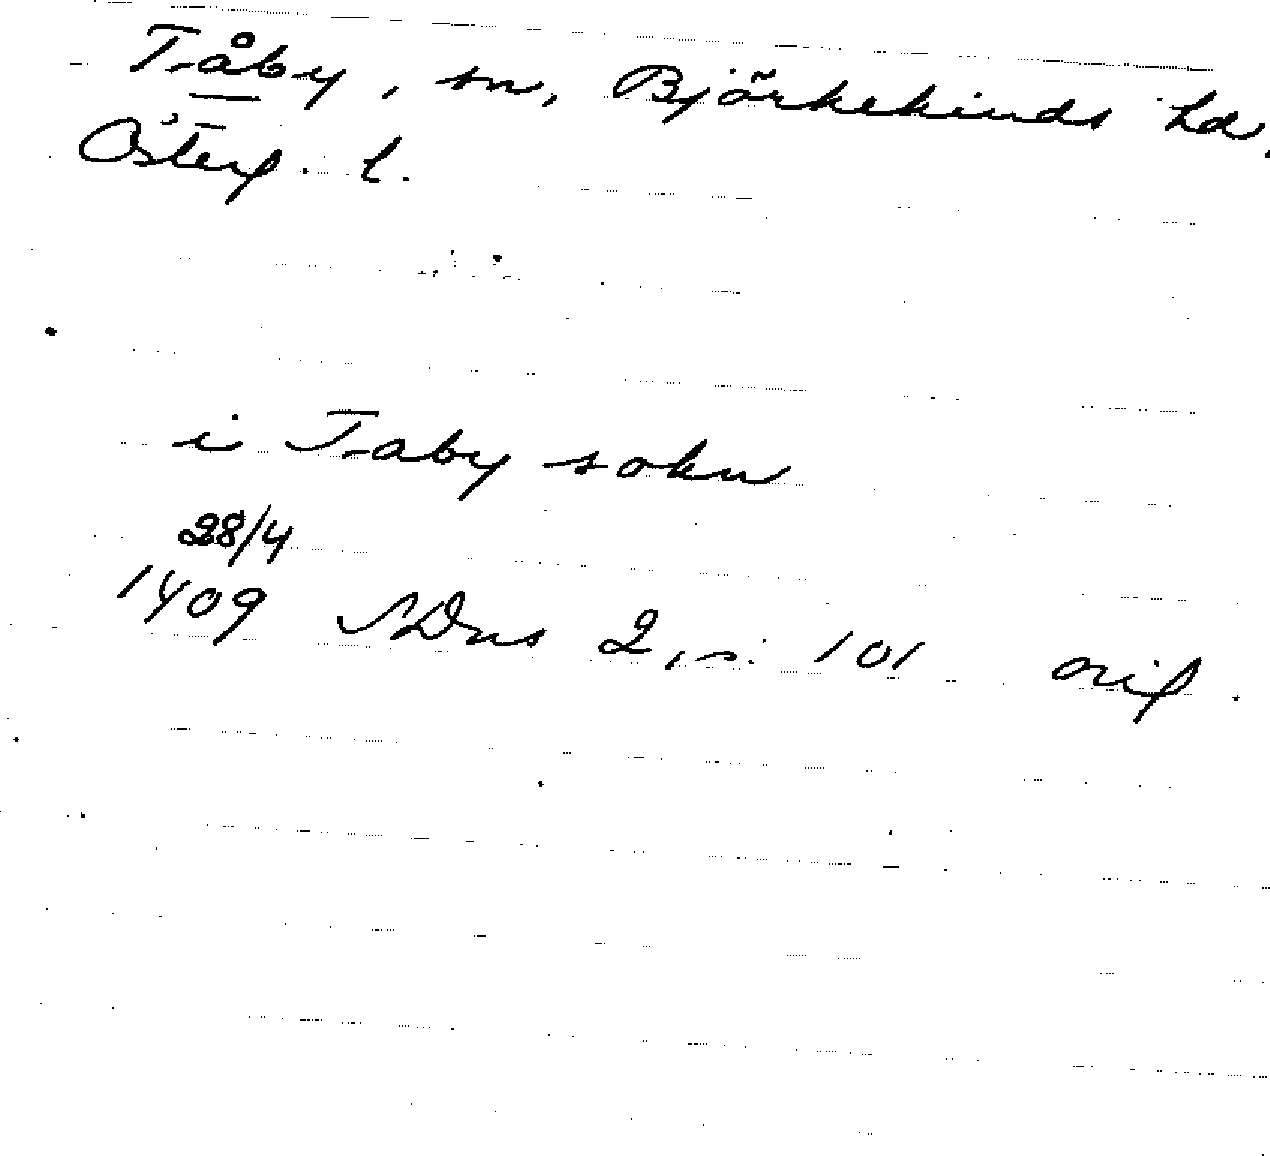 Tåby, sn, Björkekinds hd.
Österg. l.
i Taby sokn
28/4
1409 SDns 2, s. 101 orig.